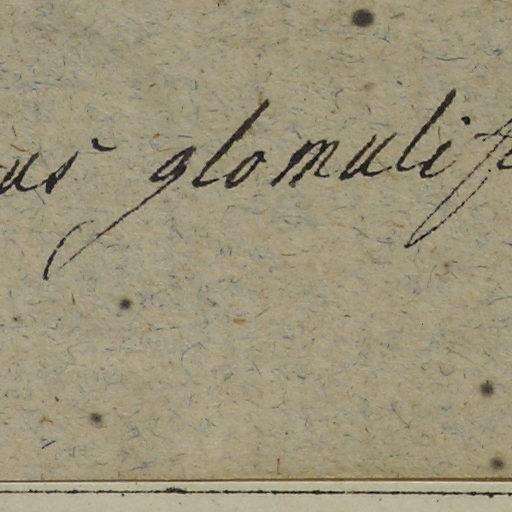 us glomulif